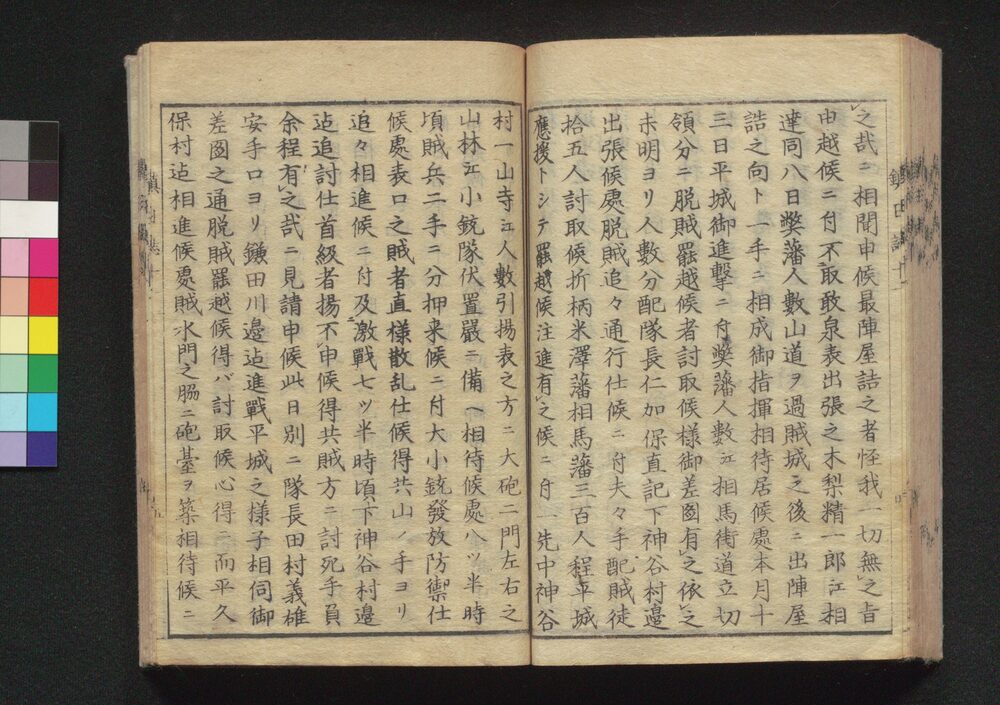 之哉ニ相聞申候最陣屋詰之者怪我一切無之旨
申越候ニ付不取敢泉表出張之木梨精一郎江相
達同八日弊藩人數山道ヲ過賊城之後ニ出陣屋
詰之向ト一手ニ相成御指揮相待居候處本月十
三日平城御進撃ニ付弊藩人數江相馬街道立切
領分ニ脱賊罷越候者討取候様御差圖有之依之
未明ヨリ人數分配隊長仁加保直記下神谷村邉
出張候處脱賊追々通行仕候ニ付夫々手配賊徒
拾五人討取候折柄米澤藩相馬藩三百人程平城
應援トシテ罷越候注進有之候ニ付一先中神谷
村一山寺江人數引揚表之方ニ大砲二門左右之
山林江小銃隊伏置嚴ニ備ヘ相待候處八ツ半時
頃賊兵二手ニ分押来候ニ付大小銃發放防禦仕
候處表口之賊者直様散乱仕候得共山ノ手ヨリ
追々相進候ニ付及激戰七ツ半時頃下神谷村邉
迠追討仕首級者揚不申候得共賊方ニ討死手負
余程有之哉ニ見請申候此日別ニ隊長田村義雄
安手口ヨリ鎌田川邉迠進戰平城之様子相伺御
差圖之通脱賊罷越候得バ討取候心得ニ而平久
保村迠相進候處賊水門之脇ニ砲臺ヲ築相待候ニ